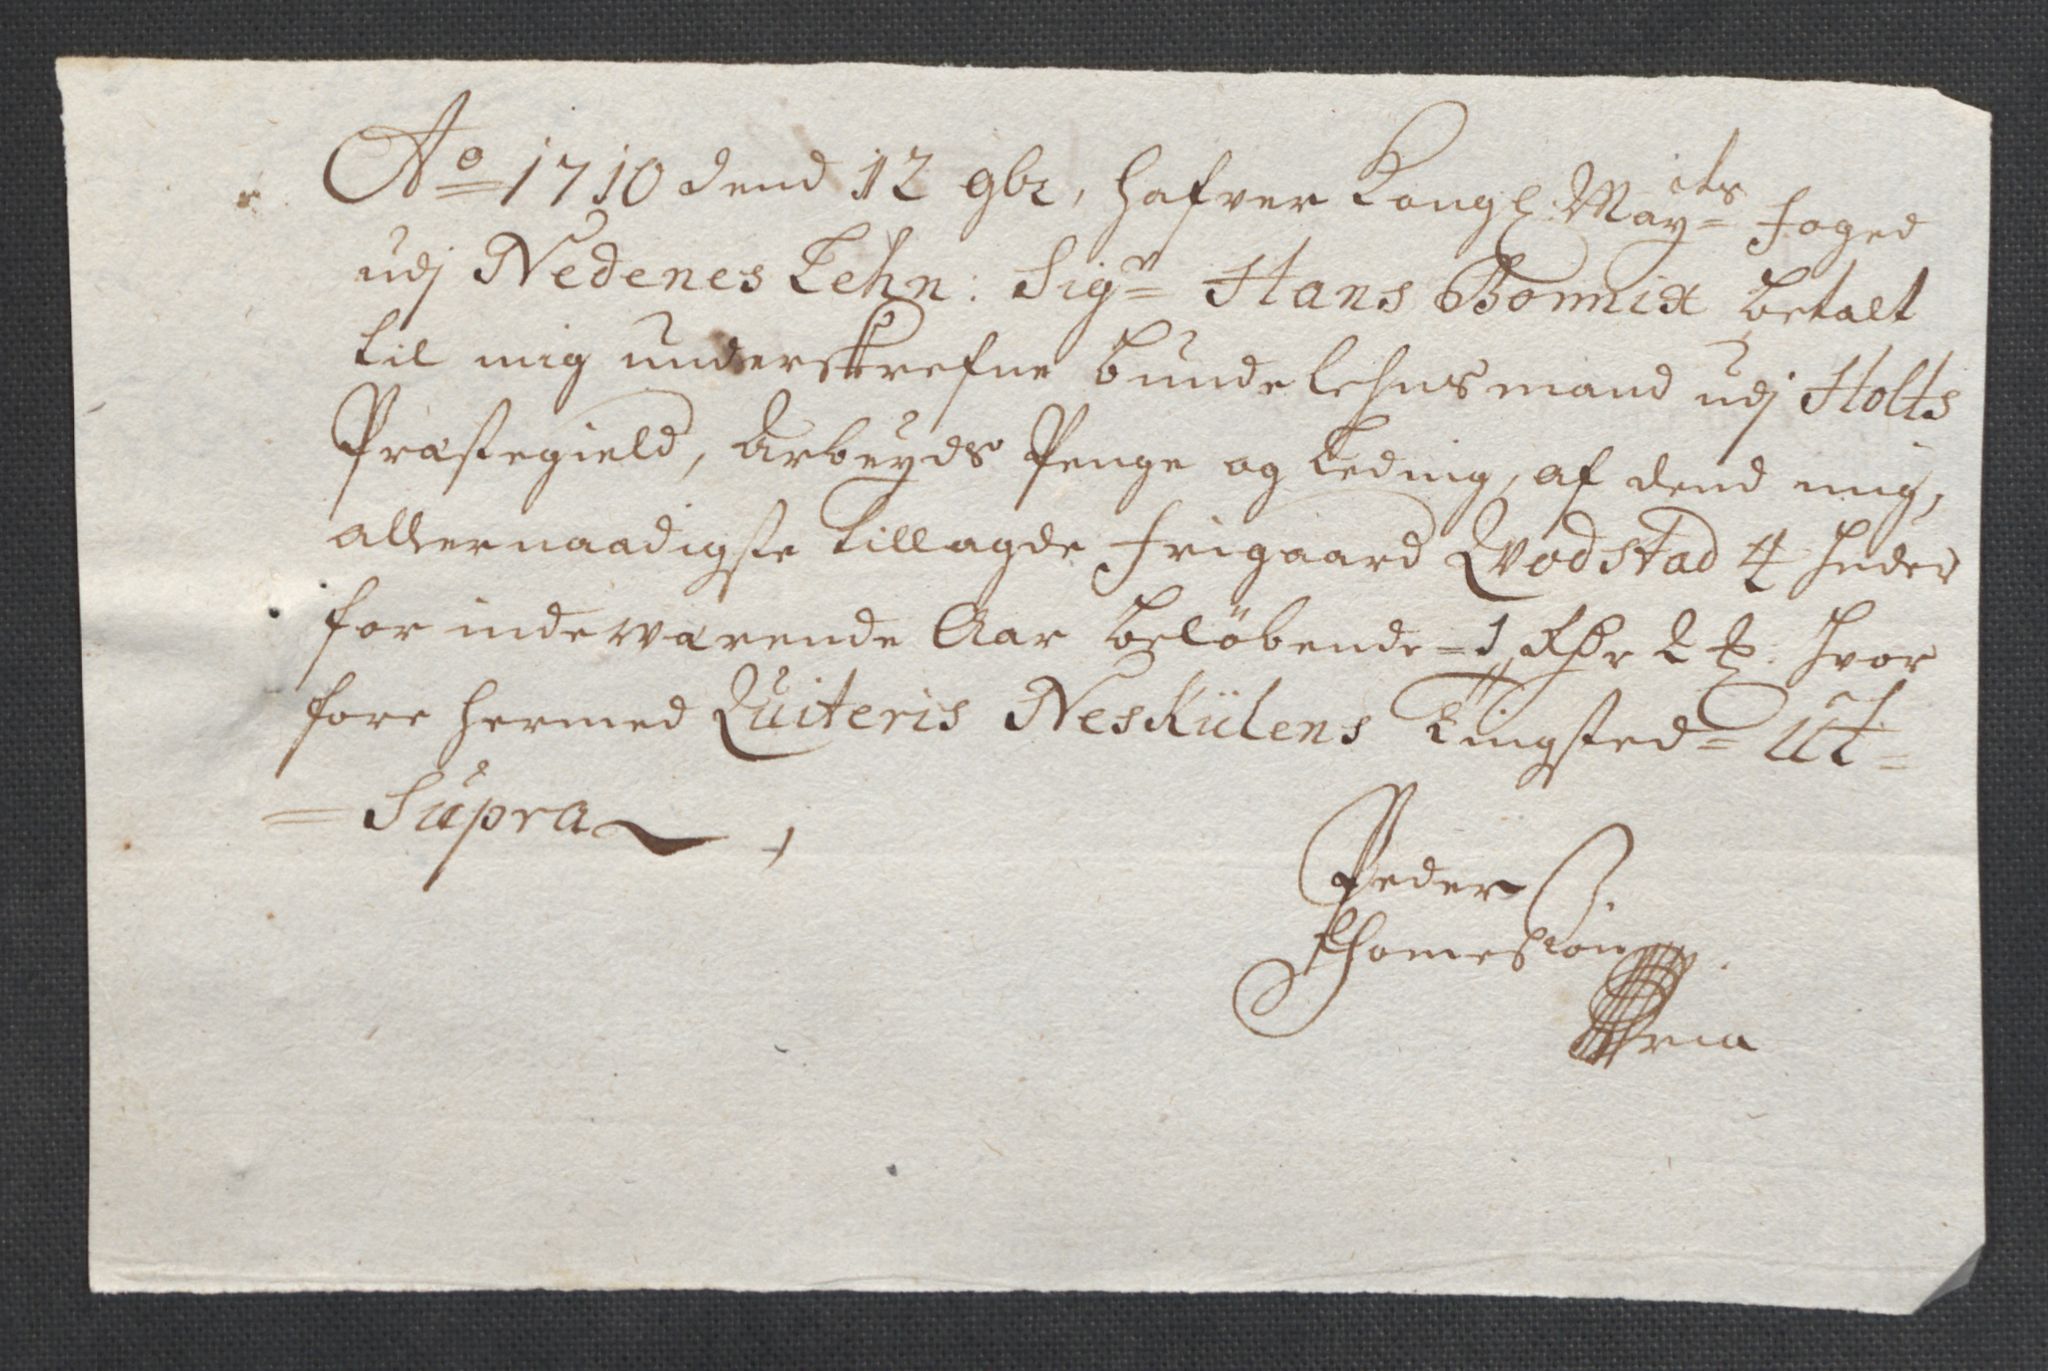 Ao 1710 dend 12 9br, hafver Kongl: Mayts Foged
udj Nedenes Lehn: Sigr Hans Bomix betalt
til mig underskrefne bunde lehnsmand udj Holts
Præstegield, Arbeyds Penge og Leding, af dend mig,
allernaadigste tillagde frigaard Qvodstad 4 huder
for indeværende Aar beløbende = 1 Rdr 2 ß. hvor
fore hermed Quiteris Neskilens Tingsted = Ut =
= Supra
Peder
Thomeson